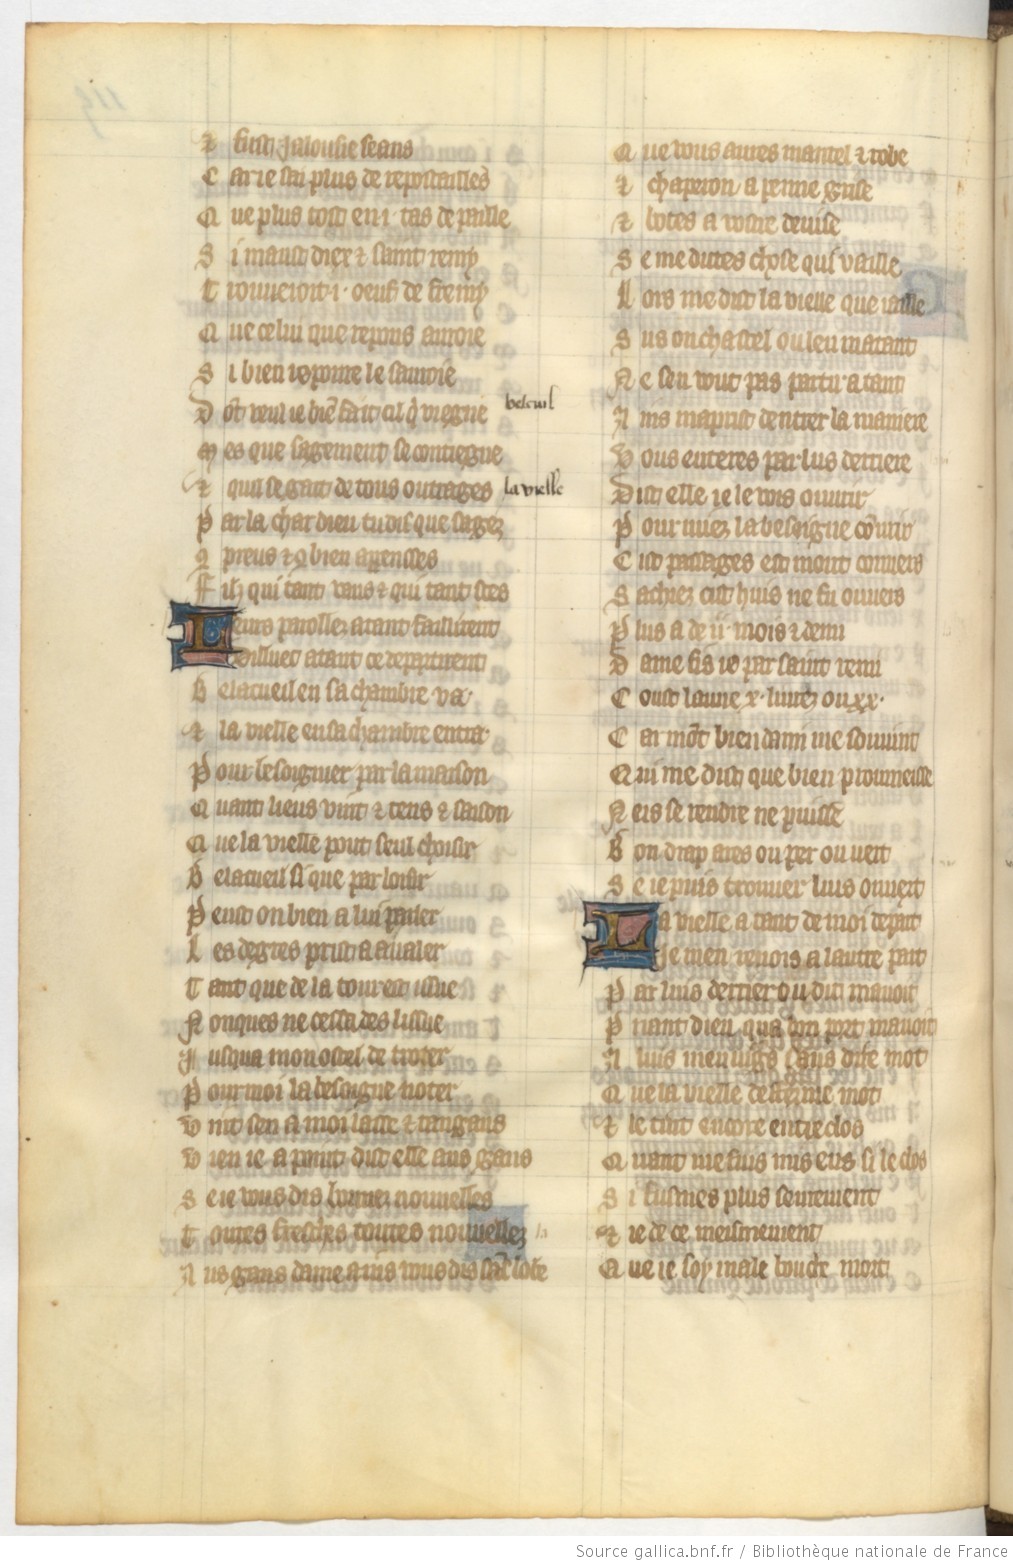 ⁊ fust Jalousie seans
C ar ie sai plus de repostailles
Q ue plus tost en .i. tas de paille
S i maust diex ⁊ saint remy
T rouueroit .i. oeuf de fremy
Q ue celui que repons auroie
S i bien repourre le sauroie
D ōt veul ie biē fait cil q̄ viegne
M es que sagement se contiegne
⁊ quil se gart de tous outrages
P ar la char dieu tu dis que sages
9 preus ⁊ 9 bien apensses
F ilz qui tant vaus ⁊ qui tant sces
L eurs parolles atant faillirent
Dilluec atant ce departirent
B elacueil en sa chambre va
⁊ la vielle en sa chambre entra
P our besoignier par la maison
Q uant lieus vint ⁊ tens ⁊ saison
Q ue la vielle pout seul choisir
B elacueil si que par loisir
P eust on bien a lui parler
L es degres prist a aualer
T ant que de la tour est issue
N onques ne cessa des lissue
J usqua mon ostel de troter
P our moi la besoigne noter
V int sen a moi lasse ⁊ tangans
V ien ie a point dist elle aus gans
S e ie vous dis bonnes nouuelles
T outes fresches toutes nouuelles
A us gans dame ains vous dis sās lobe
belcuil
la vielle
Q ue vous aures mantel ⁊ robe
⁊ chaperon a penne grise
⁊ botes a vostre deuise
S e me dites chose qui vaille
L ors me dist la vielle que iaille
S us ou chastel ou len matant
N e sen vout pas partir atant
A ins maprist dentrer la maniere
V ous enteres par luis derriere
D ist elle ie le vois ouurir
P our miex la besoigne couurir
C ist passages est mout couuers
S achiez cist huis ne fu ouuers
P lus a de .ii. mois ⁊ demi
D ame fis ie par saint remi
C oust laune .x. liures ou .xx.
C ar mōt bien dami me souuint
Q ui me dist que bien promeisse
N eis se rendre ne puisse
B on drap ares ou pers ou vert
S e ie puis trouuer luis ouuert
L a vielle a tant de moi depart
Je men reuois a lautre part
P ar luis derrier ou dit mauoit
P riant dieu qua bon port mauoit
A luis men vigs sans dire mot
Q ue la vielle desferme mot
⁊ le tint encore entreclos
Q uant me fuis mis ens si le clos
S i fusmes plus seurement
⁊ ie de ce meismement
Q ue ie soy male bouche mort